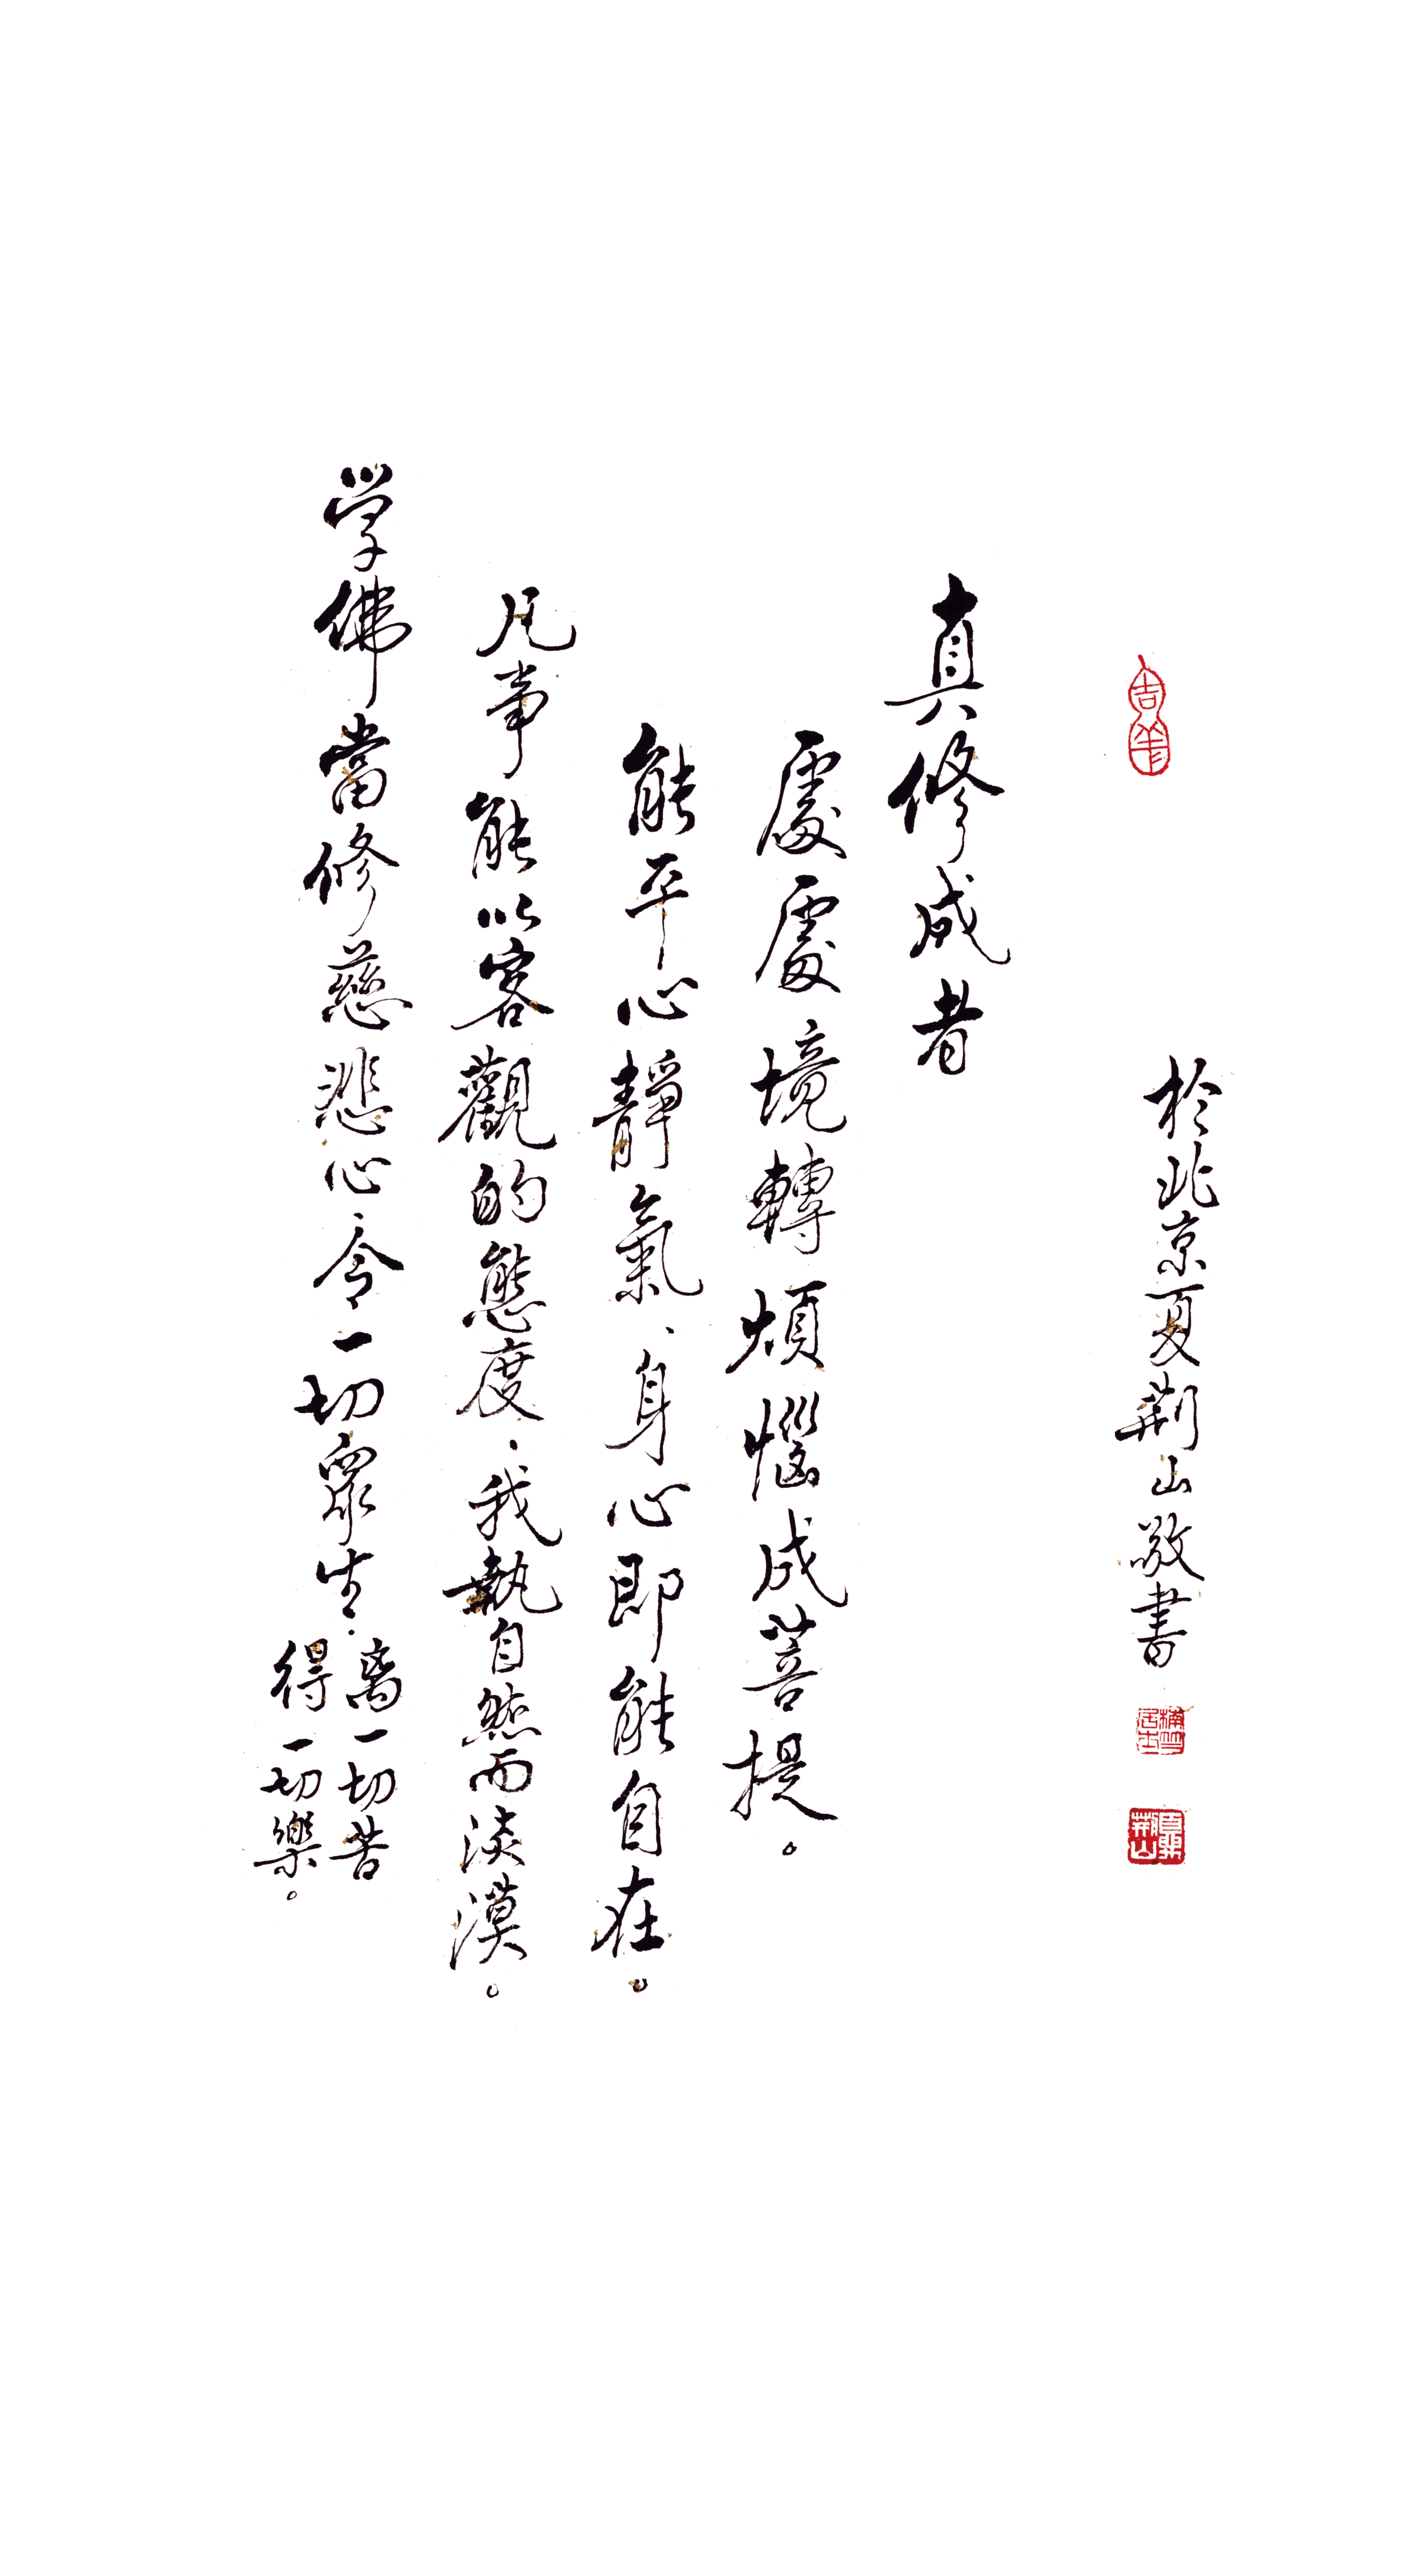 吉羊
於北京夏荊山敬書
真修成者
處處境轉煩惱成菩提。
能平心靜氣、身心即能自在。
凡事能以客觀的態度、我執自然而淡漠。
学佛當修慈悲心令一切眾生、
离一切苦
得一切樂。
夏荊山